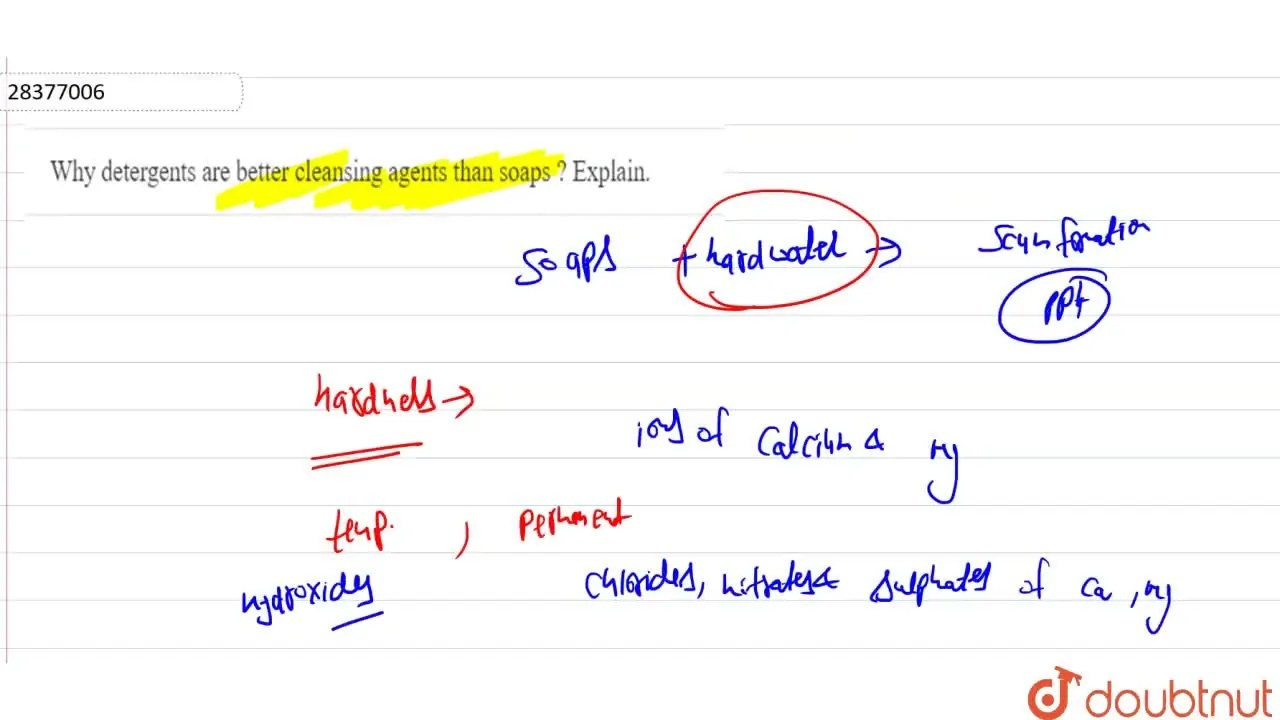 28377006
Why detergents are better cleansing agents than soaps ? Explain.
soaps + hardwater → scum formation
ppt
hardness →
ions of calcium & Mg
temp. , permanent
hydroxides
chlorides, nitrates & sulphates of Ca , Mg
doubtnut